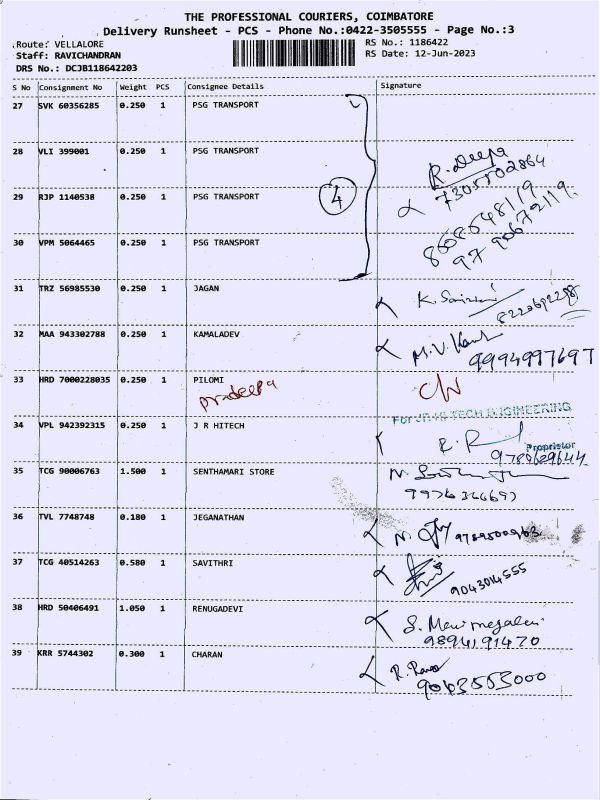 THE PROFESSIONAL COURIERS, COIMBATORE
Delivery Runsheet - PCS - Phone No.:0422-3505555 - Page No.:3
Route: VELLALORE RS No.: 1186422
Staff: RAVICHANDRAN RS Date: 12-Jun-2023
DRS No.: DCJB118642203
S No Consignment No Weight PCS Consignee Details Signature
27 SVK 60356285 0.250 1 PSG TRANSPORT
28 VLI 399001 0.250 1 PSG TRANSPORT
R. Deepa
7305502864
29 RJP 1140538 0.250 1 PSG TRANSPORT
4
8608648119
97 90672119
30 VPM 5064465 0.250 1 PSG TRANSPORT
31 TRZ 56985530 0.250 1 JAGAN
32 MAA 943302788 0.250 1 KAMALADEV
9994997697
33 HRD 7000228035 0.250 1 PILOMI
pradeepa
C/N
For JR HI TECH ENGINEERING
34 VPL 942392315 0.250 1 J R HITECH
Proprietor
9789629644
35 TCG 90006763 1.500 1 SENTHAMARI STORE
36 TVL 7748748 0.180 1 JEGANATHAN
37 TCG 40514263 0.580 1 SAVITHRI
9043014555
38 HRD 50406491 1.050 1 RENUGADEVI
9894191470
39 KRR 5744302 0.300 1 CHARAN
9003553000